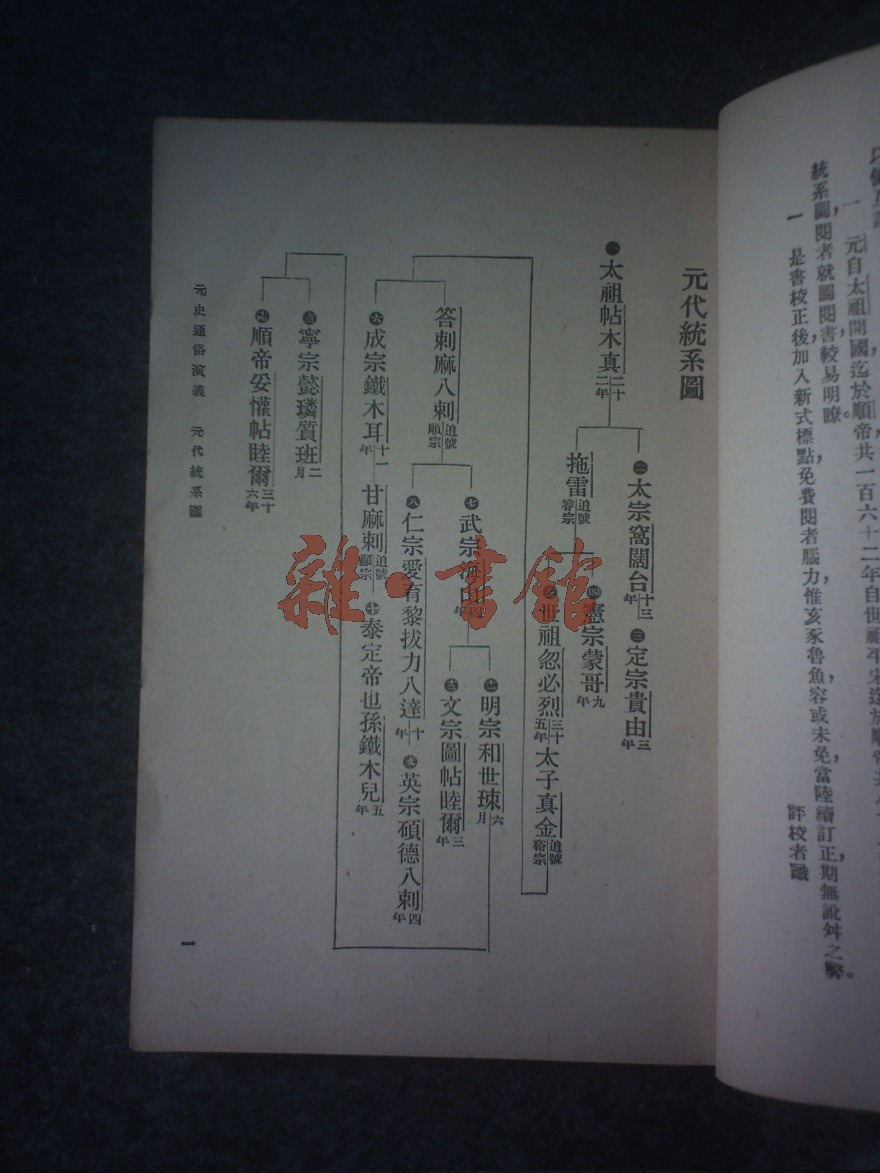 一 元自太祖開國迄於順帝共一百六十二年自世祖平宋迄於順帝共八十
統系圖,閱者就圖閱書較易明瞭。
一 是書校正後加入新式標點免費閱者腦力惟亥豕魯魚,容或未免,當陸續訂正,期無訛舛之弊。
評校者識
元代統系圖
一 太祖帖木真 二十二年
二 太宗窩闊台 十三年 三 定宗貴由 三年
拖雷 追號睿宗
四 憲宗蒙哥 九年
世祖忽必烈 三十五年 太子真金 追號裕宗
答剌麻八剌 追號順宗
七 武宗海山 四年
十一 明宗和世㻋 六月
文宗圖帖睦爾 三年
八 仁宗愛育黎拔力八達 十年 九 英宗碩德八剌 四年
六 成宗鐵木耳 十一年
甘麻剌 追號顯宗 十 泰定帝也孫鐵木兒 五年
寧宗懿璘質班 二月
順帝妥懽帖睦爾 三十六年
元史通俗演義 元代統系圖
一
雜·書館